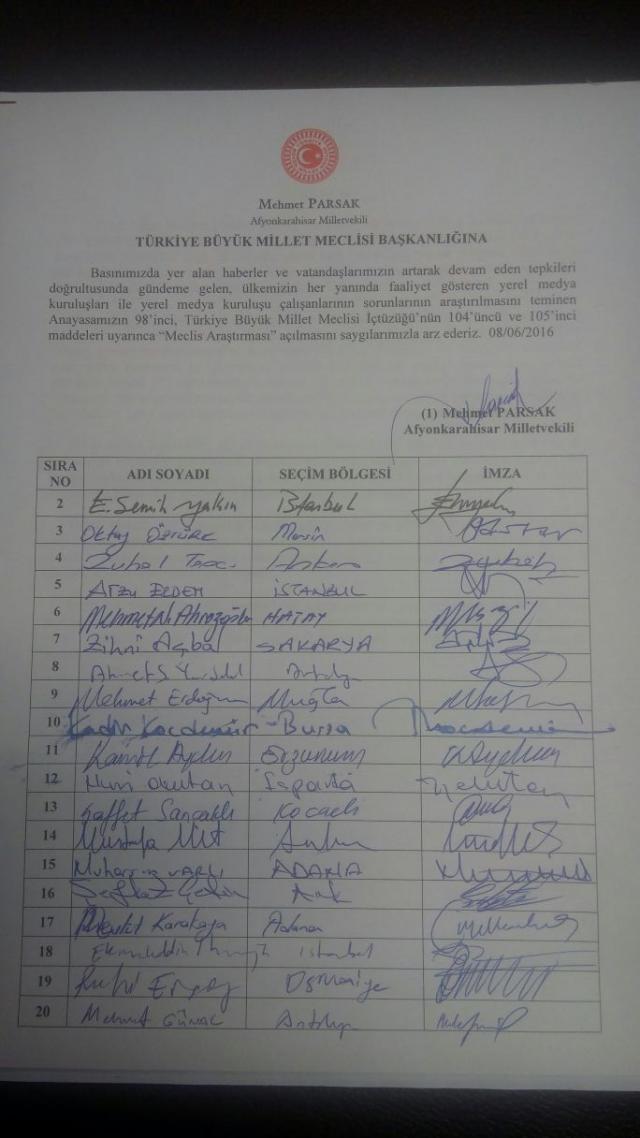 Mehmet PARSAK
Afyonkarahisar Milletvekili
TÜRKİYE BÜYÜK MİLLET MECLİSİ BAŞKANLIĞINA
Basınımızda yer alan haberler ve vatandaşlarımızın artarak devam eden tepkileri
doğrultusunda gündeme gelen, ülkemizin her yanında faaliyet gösteren yerel medya
kuruluşları ile yerel medya kuruluşu çalışanlarının sorunlarının araştırılmasını teminen
Anayasamızın 98'inci, Türkiye Büyük Millet Meclisi İçtüzüğü'nün 104'üncü ve 105'inci
maddeleri uyarınca “Meclis Araştırması” açılmasını saygılarımızla arz ederiz. 08/06/2016
(1) Mehmet PARSAK
Afyonkarahisar Milletvekili
SIRA NO ADI SOYADI SEÇİM BÖLGESİ İMZA
2 E. Semih Yalçın İstanbul
3 Oktay Öztürk Mersin
4 Zuhal Ankara
5 Arzu ERDEM İSTANBUL
6 Mehmet HATAY
7 Zihni Açba SAKARYA
8 Antalya
9 Mehmet Erdoğan Muğla
10 Kadir Koçdemir - Bursa
11 Kamil Aydın Erzurum
12 Nuri Okutan Isparta
13 Saffet Sancaklı Kocaeli
14 Mustafa Mit Ankara
15 Muharrem VARLI ADANA
16 Şefkat Çetin Ank
17 Mevlüt Karakaya Adana
18 Ekmeleddin İstanbul
19 Ruhi Ersoy Osmaniye
20 Mehmet GÜNAL Antalya